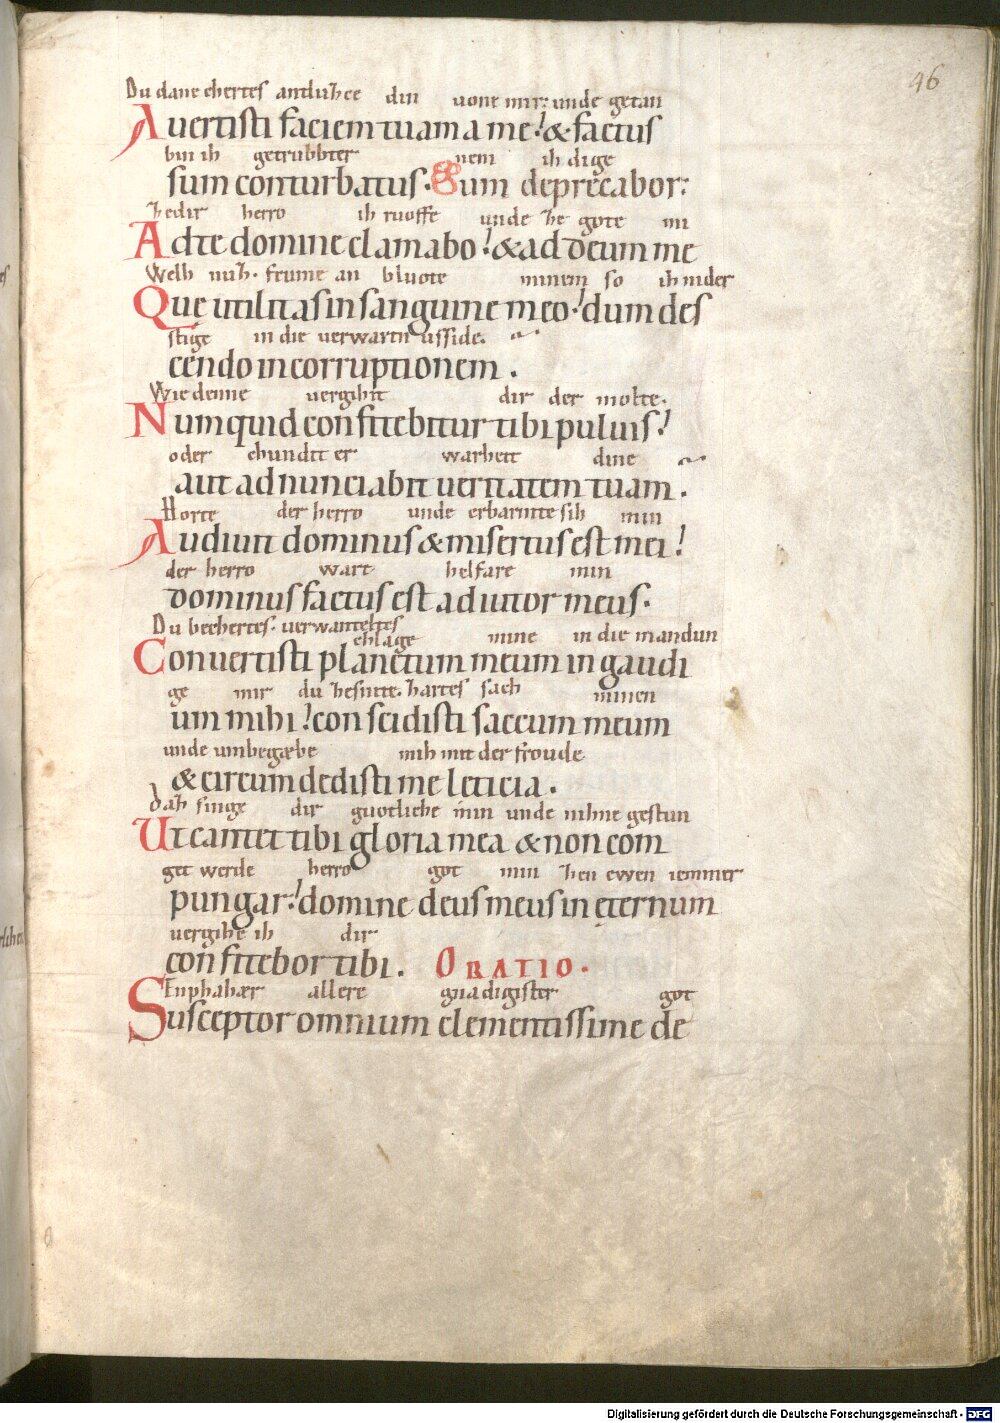 46
Du dane chertes antduhce din uone mir. unde getan
Auertisti faciem tuam a me! & factus
bin ih getrubbter nem ih dige
sum conturbatus. &um deprecabor:
hedir herro ih ruoffe unde he gote mi
Ad te domine clamabo! & ad deum me
Welh nuh. frume an bluote minem so ih nider
Que utilitas in sanguine meo! dum des
stige in die verwartn usside.
cendo in corruptionem.
Wie denne vergihit dir der molte.
Numquid confitebitur tibi puluis!
oder chundit er warheit dine
aut adnunciabit ueritatem tuam.
Horte der herro unde erbarmte sih min
Audiuit dominus & misertus est mei!
der herro wart helfare min
dominus factus est adiutor meus.
Du bechertes. verwanteltes chlage mine in die mandun
Conuertisti planctum meum in gaudi
ge mir du hesnite. hartes sach minen
um mihi! conscidisti saccum meum
unde umbegæbe mih mit der froude
& circumdedisti me leticia.
dah singe dir guotliche min unde nihne gestun
Ut cantet tibi gloria mea & non com
get werde herro got min hen ewen iemmer
pungar! domine deus meus in ęternum
vergihe ih dir
confitebor tibi. ORATIO.
Enphahær allere gnadigister got
Susceptor omnium clementissime de
Digitalisierung gefördert durch die Deutsche Forschungsgemeinschaft - DFG